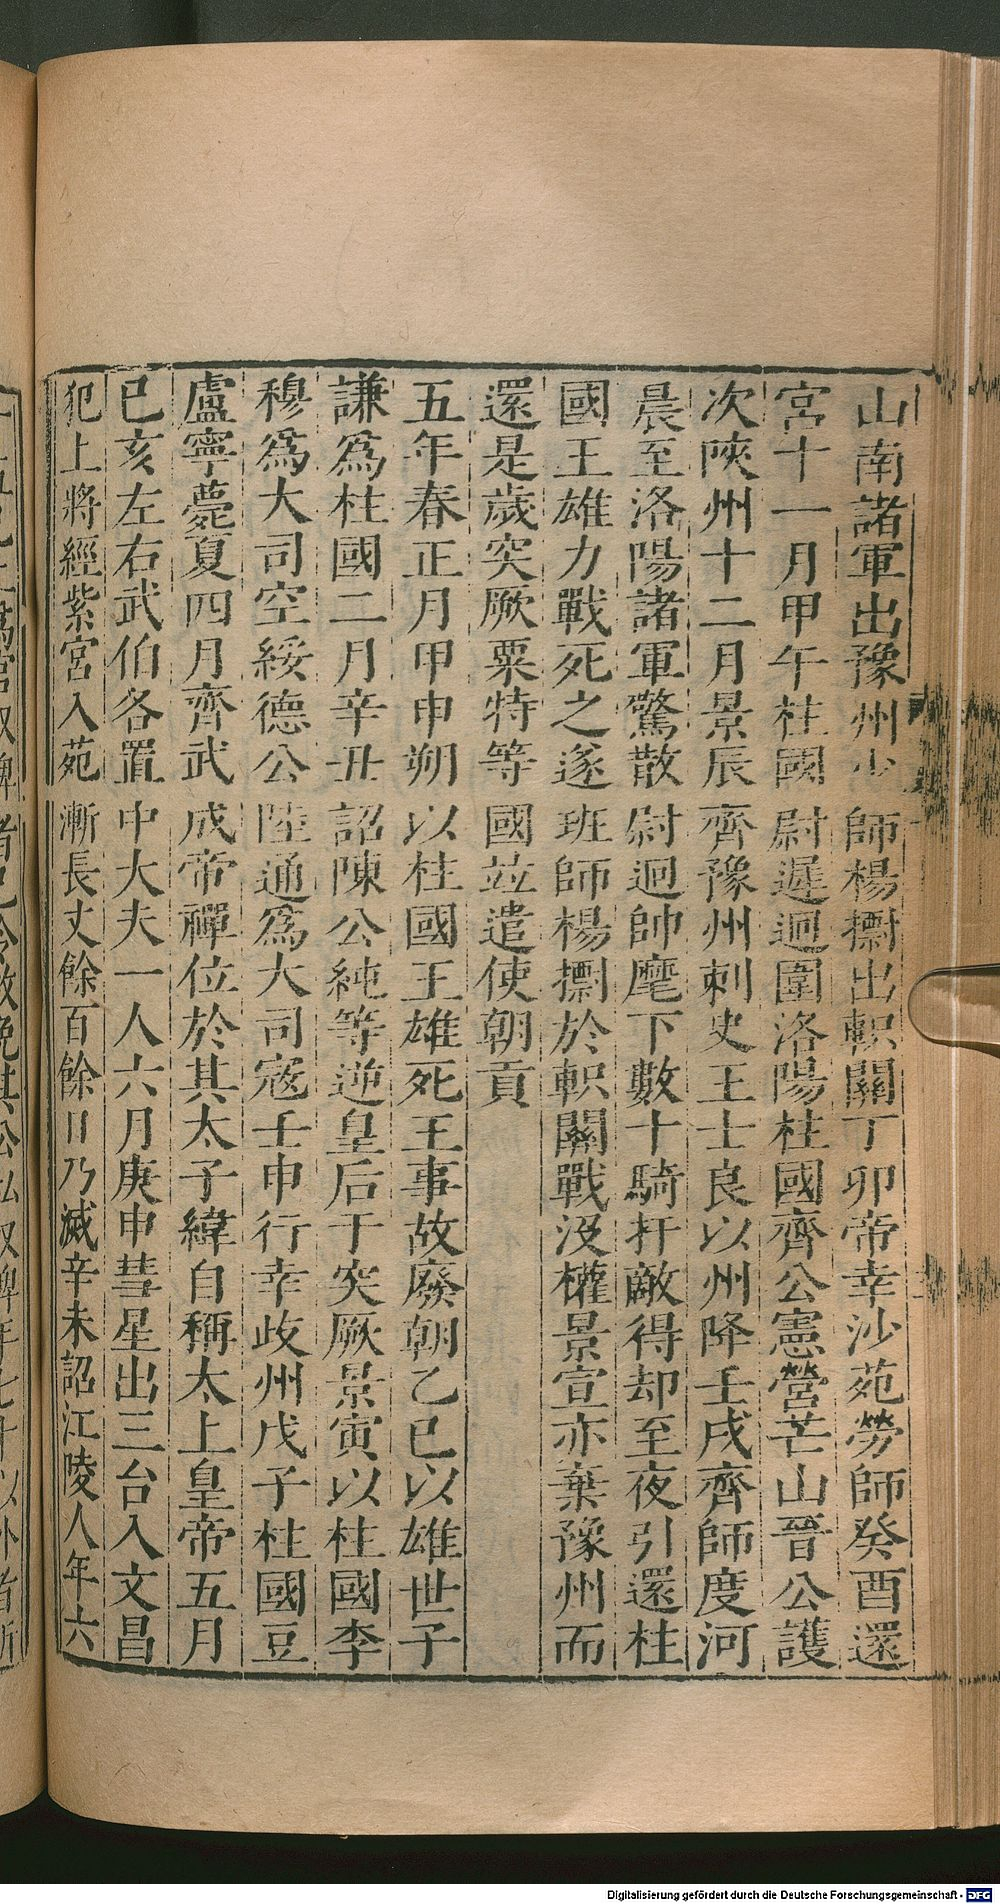 山南諸軍出豫州少師楊㯹出軹關丁卯帝幸沙苑勞師癸酉還
宮十一月甲午柱國尉遲迥圍洛陽柱國齊公憲營芒山晉公護
次陝州十二月景辰齊豫州刺史王士良以州降壬戌齊師度河
晨至洛陽諸軍驚散尉迥帥麾下數十騎扞敵得却至夜引還柱
國王雄力戰死之遂班師楊㯹於軹關戰沒權景宣亦棄豫州而
還是歲突厥粟特等國竝遣使朝貢
五年春正月甲申朔以柱國王雄死王事故廢朝乙巳以雄世子
謙爲柱國二月辛丑詔陳公純等逆皇后于突厥景寅以柱國李
穆爲大司空綏德公陸通爲大司寇壬申行幸歧州戊子柱國豆
盧寧薨夏四月齊武成帝禪位於其太子緯自稱太上皇帝五月
已亥左右武伯各置中大夫一人六月庚申彗星出三台入文昌
犯上將經紫宮入苑漸長丈餘百餘日乃滅辛未詔江陵人年六
Digitalisierung gefördert durch die Deutsche Forschungsgemeinschaft - DFG